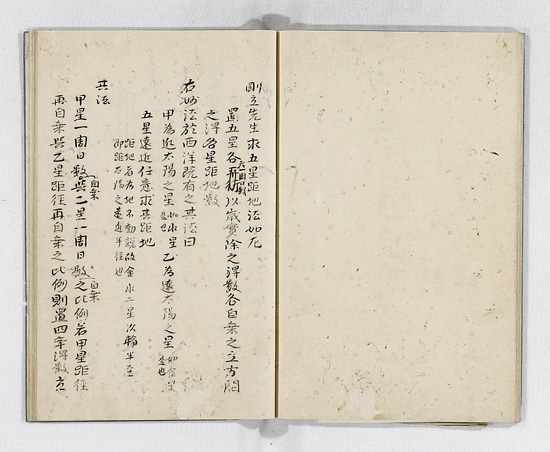 剛立先生求五星距地法如左
置五星各天周數以歳實除之得數各自乗之立方開
之得各星距地數
右出法於西洋既有之其法曰
甲為近太陽之星如水星是也乙為遠太陽之星如金星是也
五星遠近任意求其距地
距地者為地不動說故金水二星以輪半至
即距太陽之遠近半径也
其法
甲星一周日數自乗與乙星一周日數自乗之比例若甲星距径
再自乗與乙星距径再自乗之比例則置四率得數立